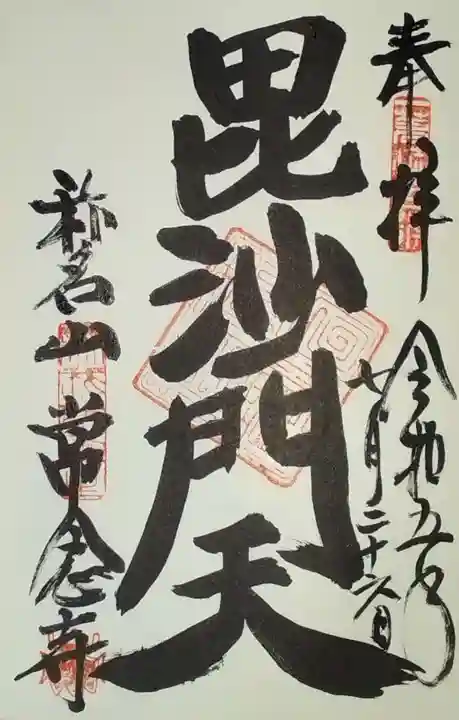 奉拝
令和五年
七月二十六日
毘沙門天
称名山常念寺